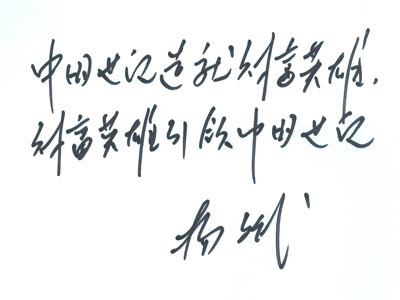 中国世纪造就财富英雄，
财富英雄引领中国世纪
杨斌